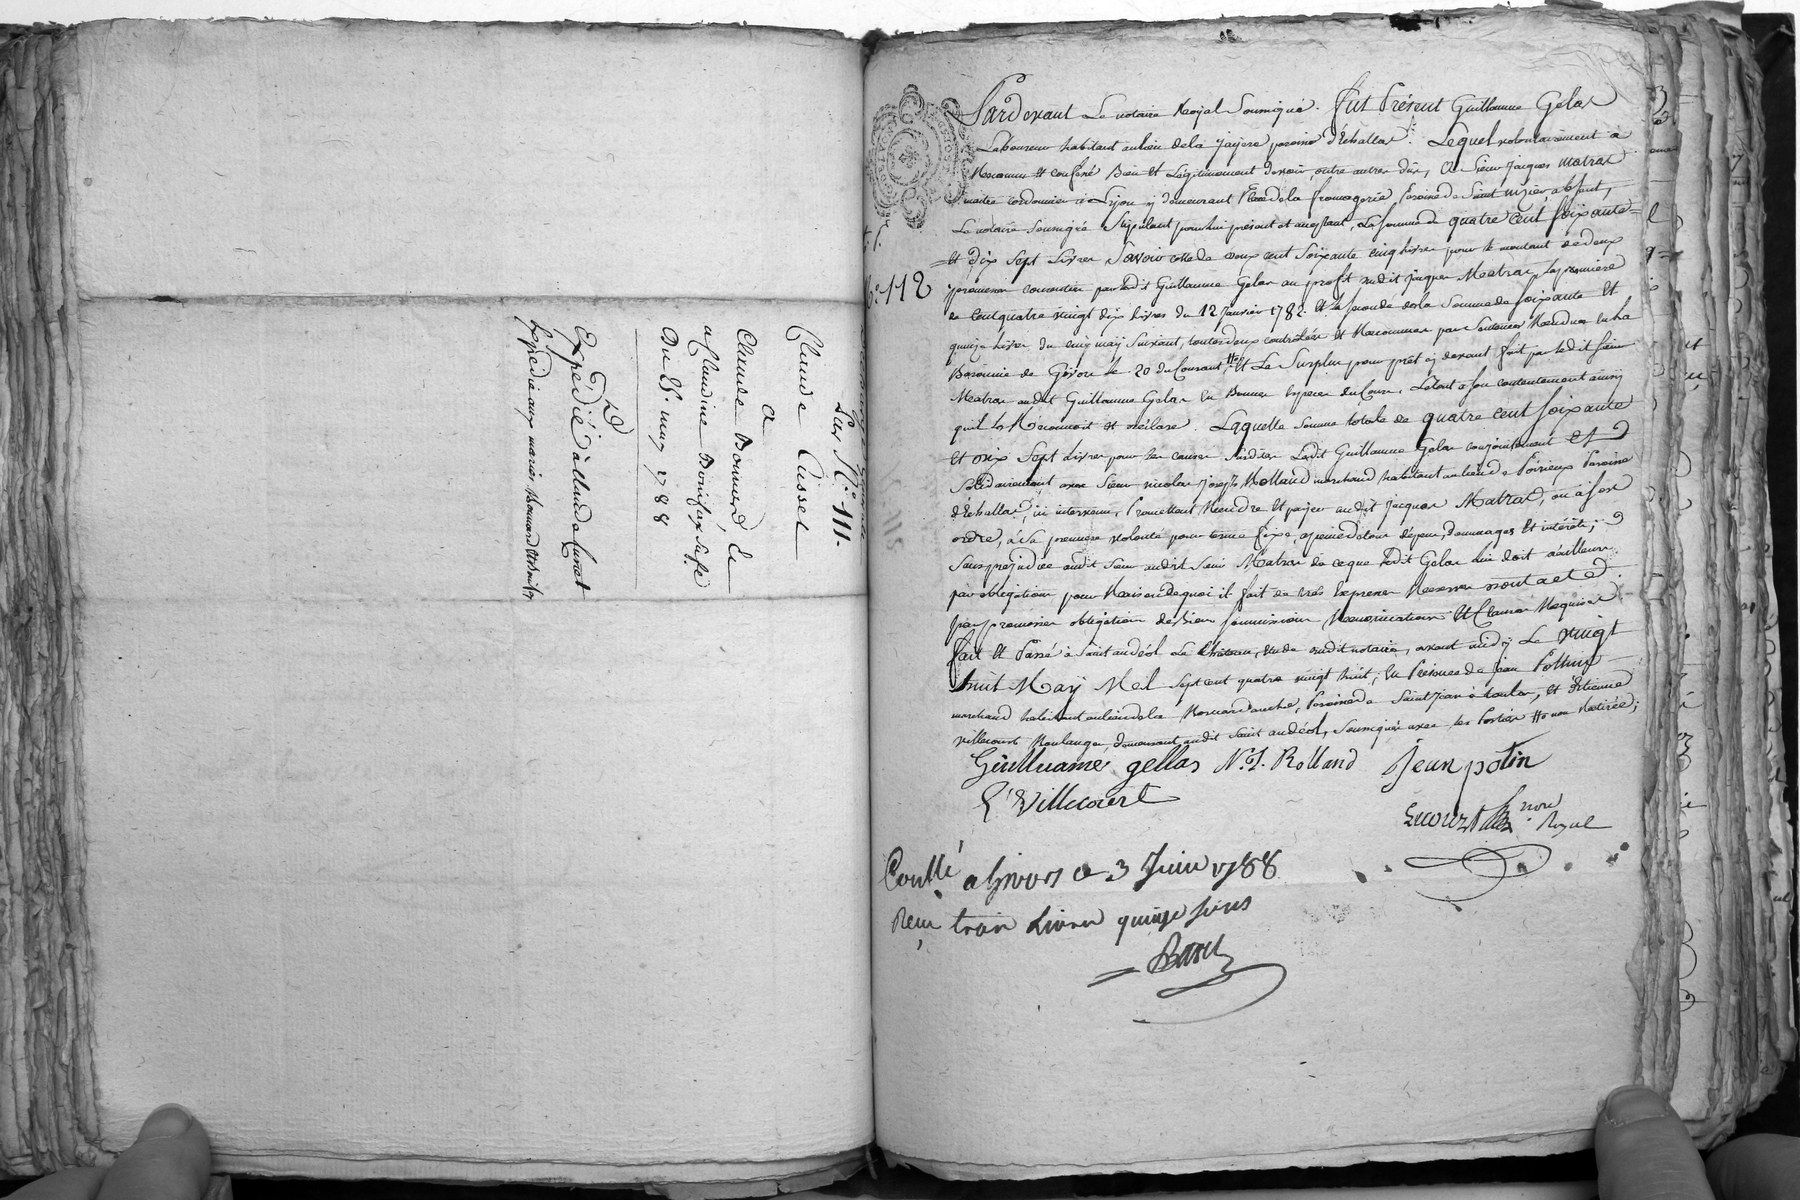 Sur N.° 111.
Claude Cusset
a
Clemse Bonnard &
a Claudine Bonifax sa fe
Du 25. may 1788
Expédié à Claude Cusset
Expédié aux mariés Bonnard &
N.° 112
Pardevant Le notaire Royal Soussigné. fut Présent Guillaume Gelas
Laboureur habitant au lieu de la Jayere paroisse d'Echallas. Lequel volontairement a
Reconnu et confessé Bien et Légitimement devoir, outre autres dûs, à Sieur Jacques Matras
maitre cordonnier à Lyon y demeurant Place de la fromagerie Paroisse de Saint nizier, absent,
Le notaire Soussigné Stipulant pour lui présent et acceptant, La somme de quatre cent soixante
et dix sept Livres Savoir celle de deux cent soixante cinq livres pour le montant de deux
promesses consenties par ledit Guillaume Gelas au profit dudit Jacques Matras, la première
de Cent quatre vingt dix livres du 12 Janvier 1782. et la seconde de la Somme de soixante et
quinze livres du cinq may suivant, toutes deux controllées et Reconnues par Sentences Rendues en la
Baronnie de Givors le 20 du Courant, et Le Surplus pour prêt cy devant fait par ledit Sieur
Matras audit Guillaume Gelas en Bonnes Especes du Cours, Le tout à son contentement ainsy
qu'il le Reconnoit et déclare. Laquelle somme totale de quatre cent soixante
et dix Sept Livres pour les causes susdites Ledit Guillaume Gelas conjointement et
Solidairement avec Sieur nicolas Joseph Rolland marchand habitant au lieu de Poirieux Paroisse
d'Echallas, ici intervenu, Promettent Rendre et payer audit Jacques Matras, ou à son
ordre, à sa premiere volonté pour terme fixe a peine de tous dépens, dommages et intérêts;
Sans préjudice audit Sieur Matras de ce que ledit Gelas lui doit d'ailleurs
par obligation pour Raison de quoi il fait de très Expresses Reserves dont acte.
par promesses obligation de Biens soumissions Renonciations et Clauses Requises
fait et Passé à Saint andéol Le Château, Etude dudit notaire, avant midy Le vingt
huit May Mil Sept cent quatre vingt huit, En Présence de Jean Pottin
marchand habitant au lieu de la Paroisse de Saint Jean à toulas, et Etienne
Villecourt Boulanger, demeurant audit Saint andéol, Soussignés avec les Parties
Guilluames gellas N. J. Rolland Jean potin
E Villecourt
nore
Royal
Conllé a Givors ce 3 Juin 1788
Reçu trois Livres quinze sous